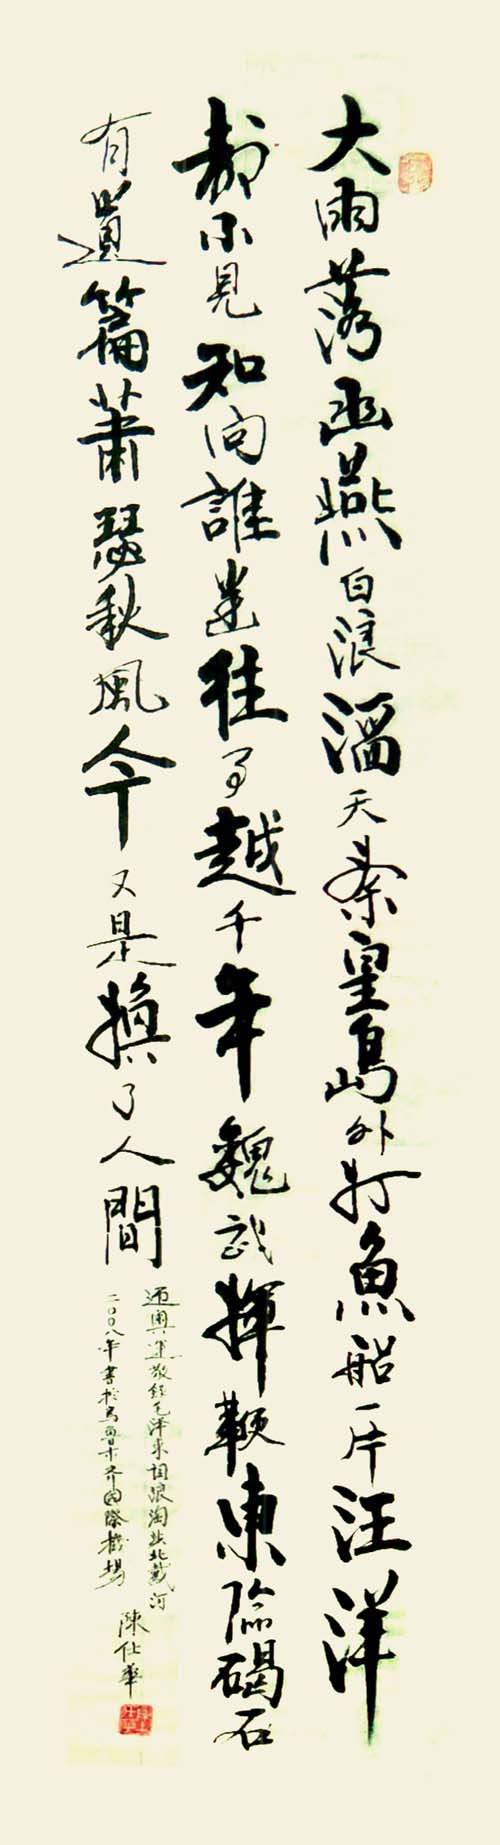 大雨落幽燕白浪滔天秦皇島外打魚船一片汪洋
都不見知向誰邊往事越千年魏武揮鞭東臨碣石
有遺篇蕭瑟秋風今又是換了人間
迎奧運敬錄毛泽東詞浪淘沙北戴河
二〇〇八年書於烏魯木齐国際機場
陳仕華